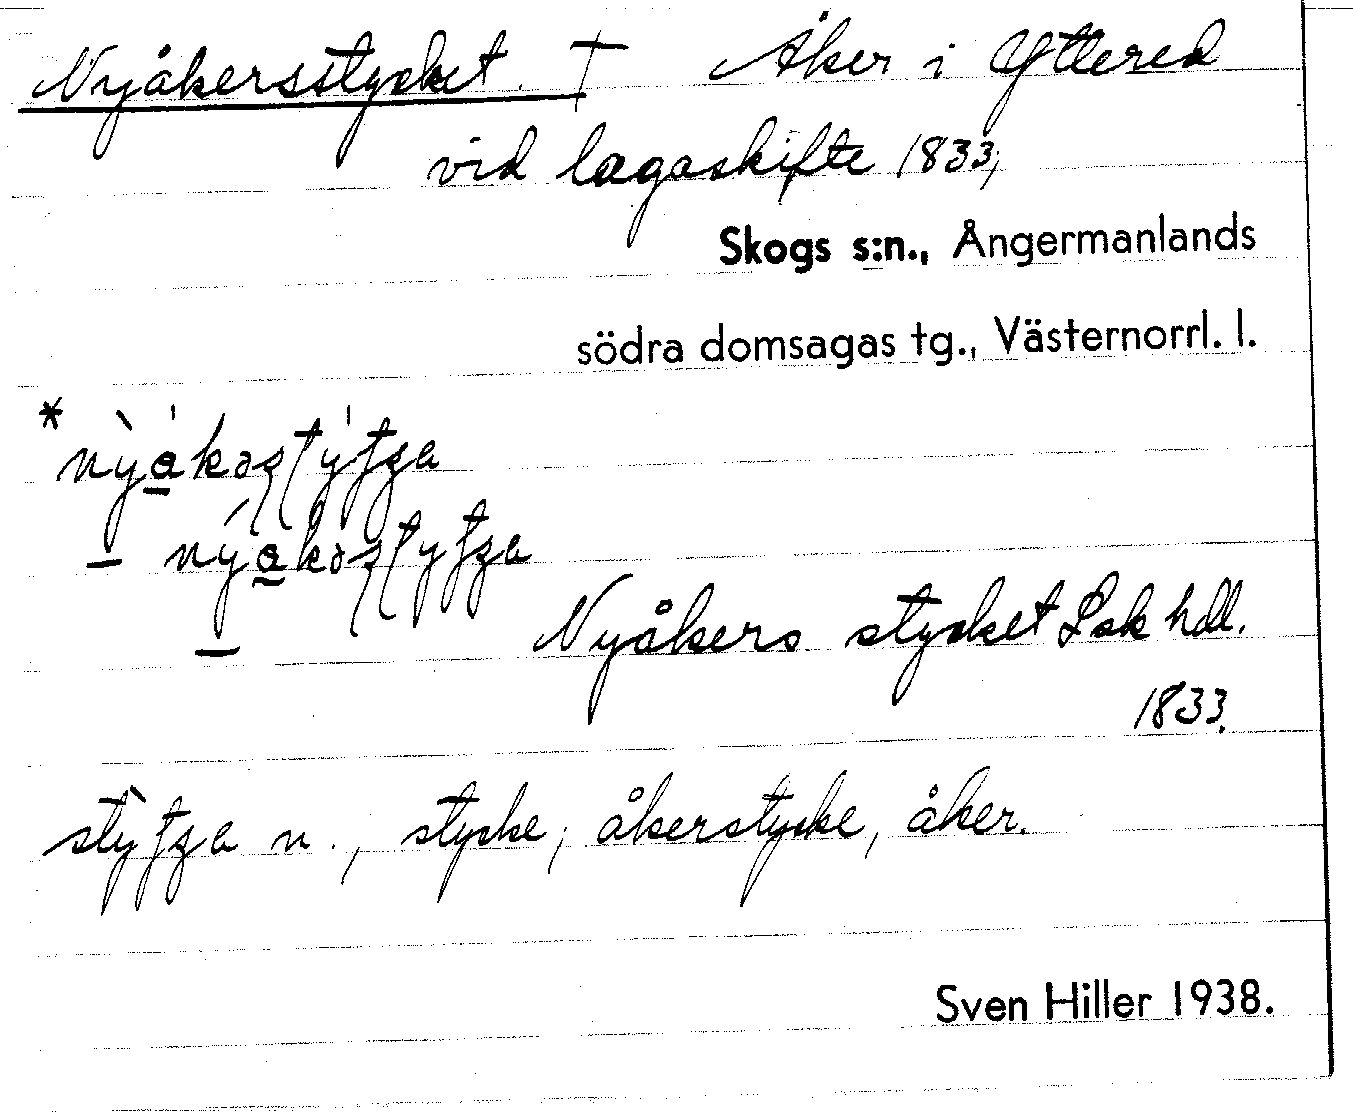 Nyåkersstycket. † Åker i Yttered
vid lagaskifte 1833,
Skogs s:n., Ångermanlands
södra domsagas tg., Västernorrl. l.
Nyåkers stycket Lsk hdl.
1833.
n., stycke; åkerstycke, åker.
Sven Hiller 1938.